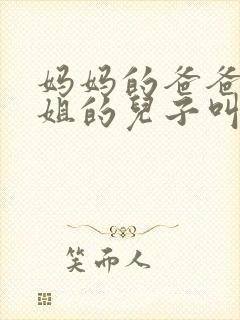 妈妈的爸爸
姐的兒子叫
笑而人